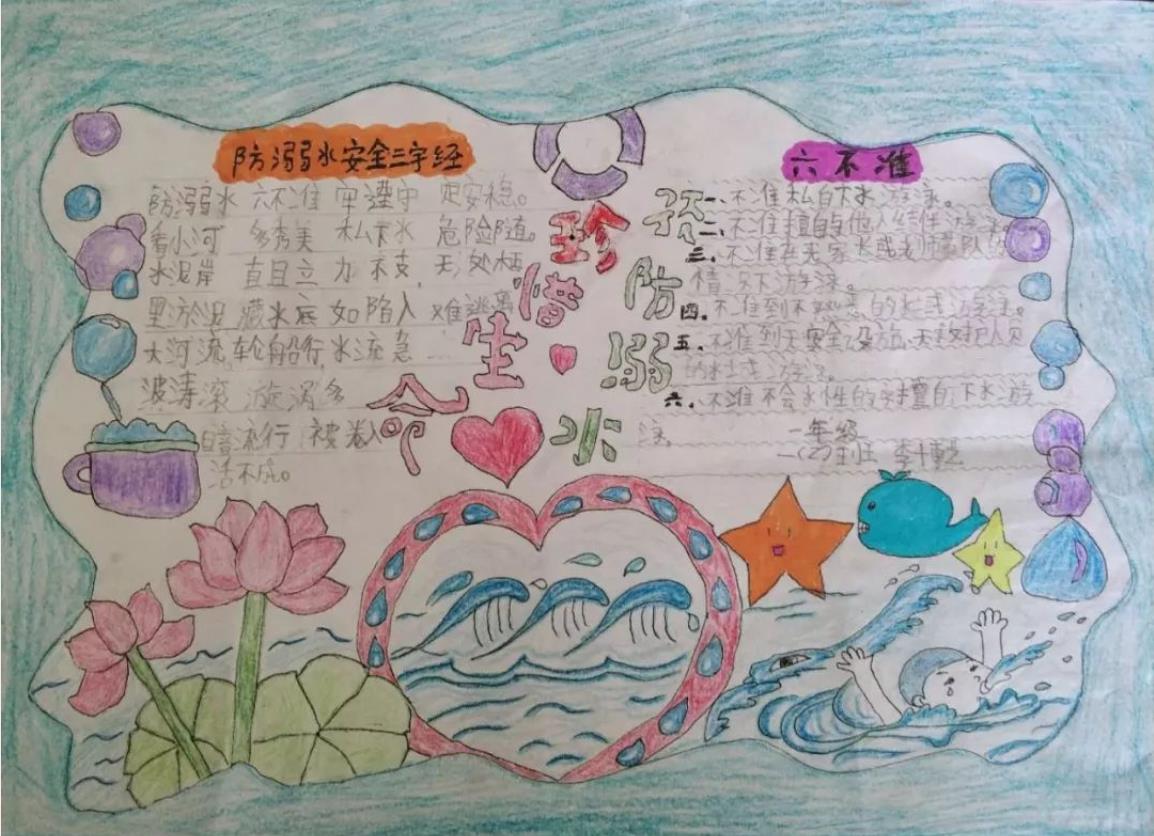 防溺水安全三字经
防溺水 六不准 牢遵守 定安稳。
看小河 多秀美 私下水 危险随。
水泥岸 直且立 力不支, 无处栖
里淤泥 藏水底 如陷入 难逃离
大河流,轮船行,水流急
波涛滚 旋涡多
暗流行 被卷入
活不成。
珍惜
生命
预防溺水
六不准
一、不准私自下水游泳。
二、不准擅自与他人结伴游泳
三、不准在无家长或老师带队的
情况下游泳。
四、不准到不熟悉的水域游泳。
五、不准到无安全设施、无救护人员
的水域游泳。
六、不准不会水性的学擅自下水游
泳。
一年级
一(2)班